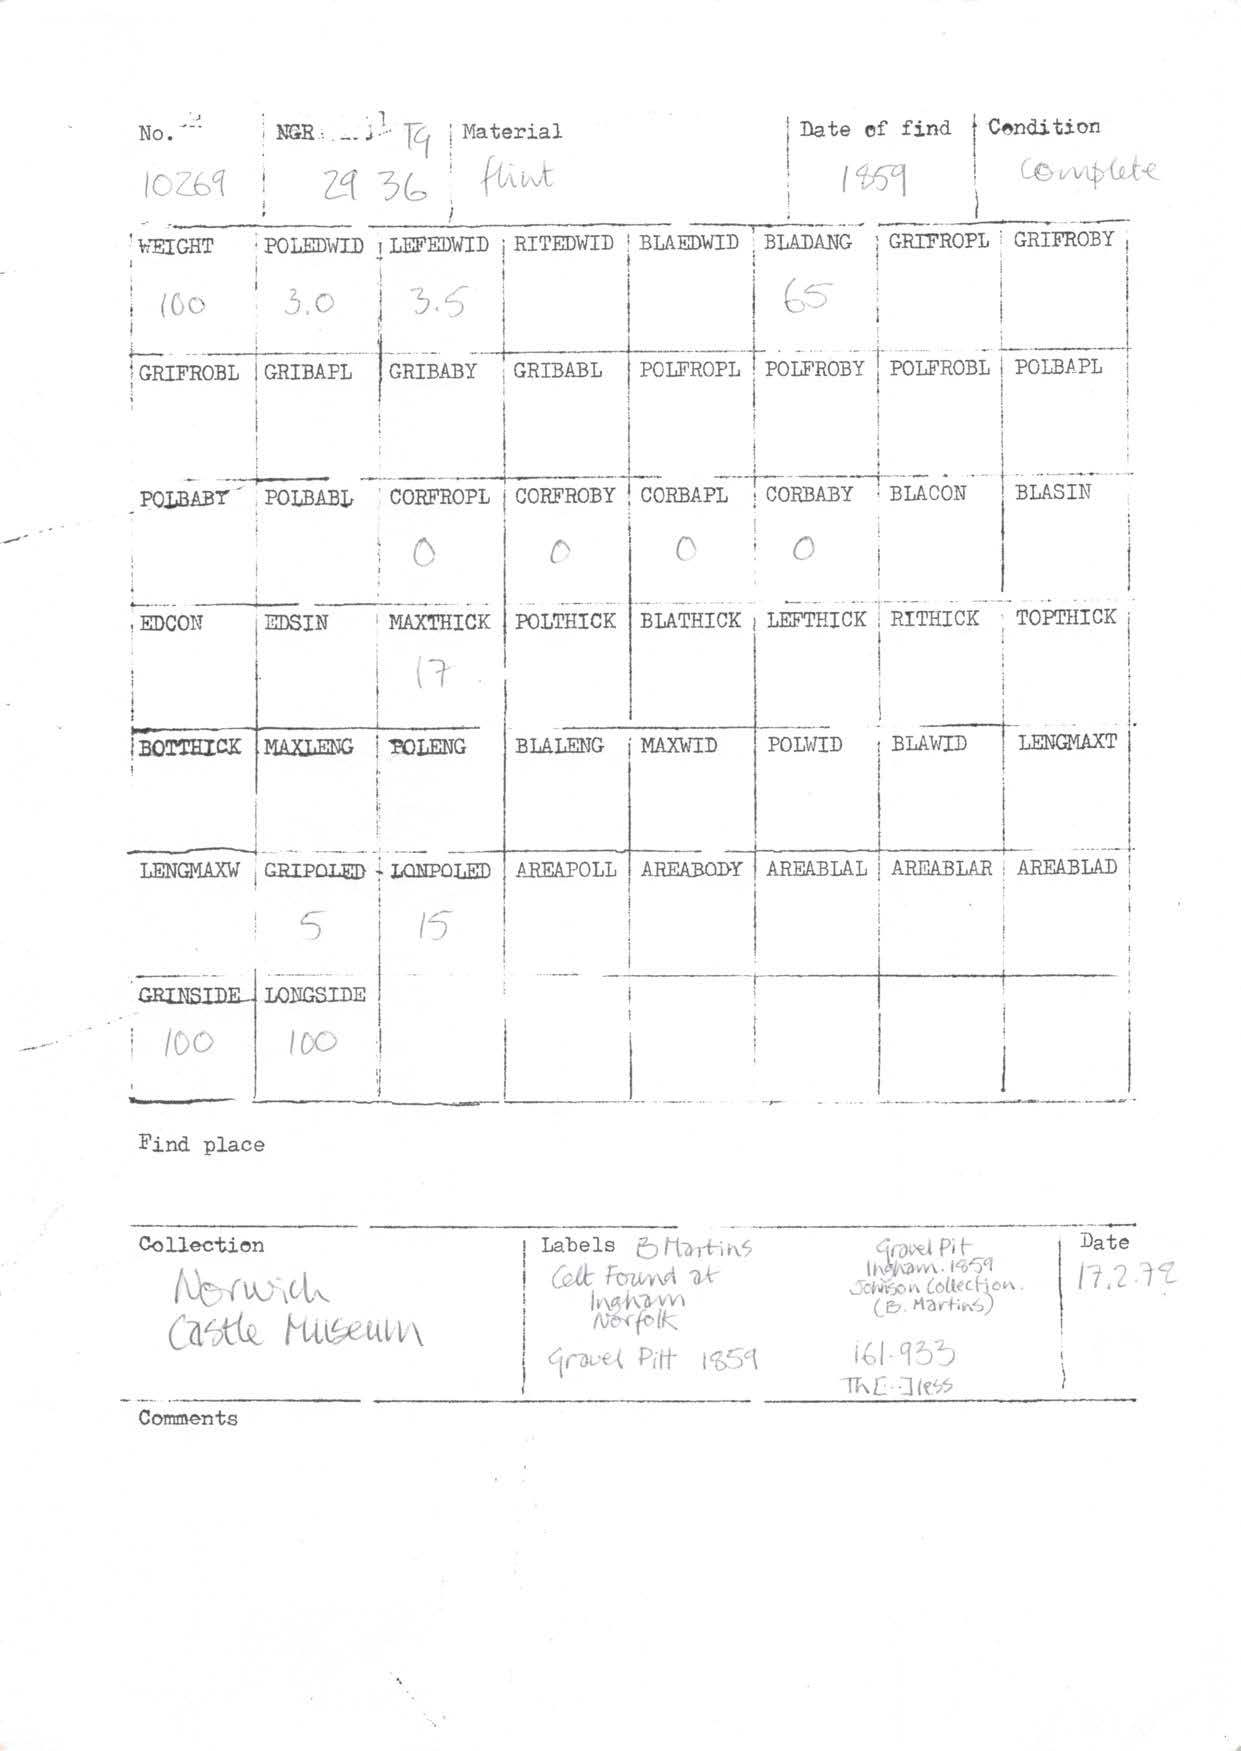 No. NGR TG Material Date of find Condition
10269 29 36 flint 1859 complete
WEIGHT POLEDWID LEFEDWID RITEDWID BLAEDWID BLADANG GRIFROPL GRIFROBY
100 3.0 3.5 65
GRIFROBL GRIBAPL GRIBABY GRIBABL POLFROPL POLFROBY POLFROBL POLBAPL
POLBABY POLBABL CORFROPL CORFROBY CORBAPL CORBABY BLACON BLASIN
0 0 0 0
EDCON EDSIN MAXTHICK POLTHICK BLATHICK LEFTHICK RITHICK TOPTHICK
17
BOTTHICK MAXLENG POLENG BLALENG MAXWID POLWID BLAWID LENGMAXT
LENGMAXW GRIPOLED LONPOLED AREAPOLL AREABODY AREABLAL AREABLAR AREABLAD
5 15
GRINSIDE LONGSIDE
100 100
Find place
Collection
Norwich
Castle Museum
Labels B Martins
Celt Found at
Ingham
Norfolk
Gravel Pitt 1859
Gravel Pit
Ingham. 1859
Johnson Collection.
(B. Martins)
161.933
Th[..]less
Date
17.2.72
Comments